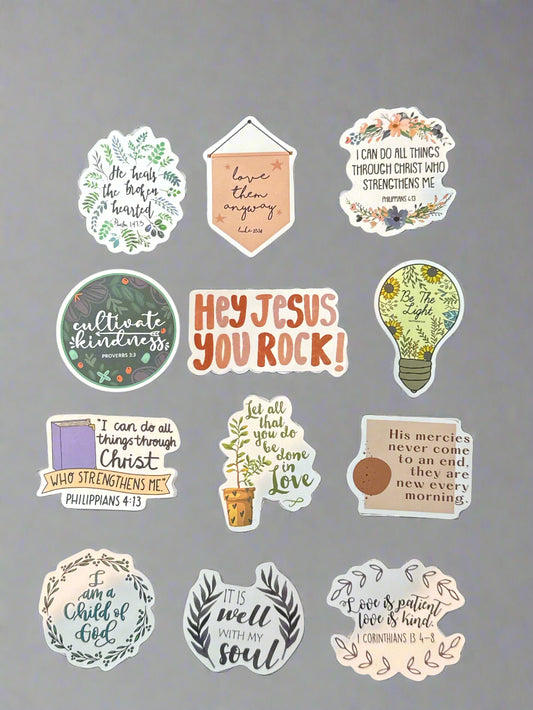 He heals
the broken
hearted
Psalm 147:3
love
them
anyway
Luke 23:34
I CAN DO ALL THINGS
THROUGH CHRIST WHO
STRENGTHENS ME
PHILIPPIANS 4:13
cultivate
kindness
PROVERBS 3:3
HEY JESUS
YOU ROCK!
Be The
Light
"I can do all
things through
Christ
WHO STRENGTHENS ME."
PHILIPPIANS 4:13
Let all
that
you do
be
done
in
Love
His mercies
never come
to an end,
they are
new every
morning.
I
am a
Child of
God
IT IS
well
WITH MY
soul
Love is patient
love is kind.
1 CORINTHIANS 13 4-8